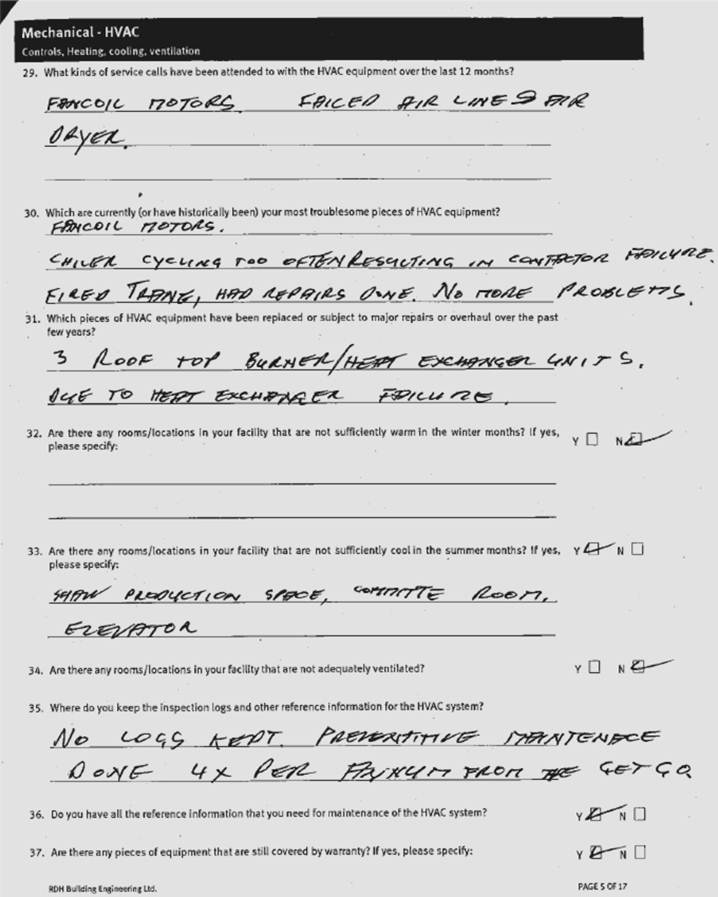 Mechanical - HVAC
Controls, Heating, cooling, ventilation
29. What kinds of service calls have been attended to with the HVAC equipment over the last 12 months?
FANCOIL MOTORS FAILED AIR LINES AIR
DRYER.
30. Which are currently (or have historically been) your most troublesome pieces of HVAC equipment?
FANCOIL MOTORS.
CHILER CYCLING TOO OFTEN RESULTING IN CONTACTOR FAILURE.
FIRED TRANE, HAD REPAIRS DONE. NO MORE PROBLEMS.
31. Which pieces of HVAC equipment have been replaced or subject to major repairs or overhaul over the past
few years?
3 ROOF TOP BURNER/HEAT EXCHANGER UNITS.
DUE TO HEAT EXCHANGER FAILURE.
32. Are there any rooms/locations in your facility that are not sufficiently warm in the winter months? If yes, Y N
please specify:
33. Are there any rooms/locations in your facility that are not sufficiently cool in the summer months? If yes, Y N
please specify:
SHAW PRODUCTION SPACE, COMMITTE ROOM,
ELEVATOR
34. Are there any rooms/locations in your facility that are not adequately ventilated? Y N
35. Where do you keep the inspection logs and other reference information for the HVAC system?
NO LOGS KEPT. PREVENTITIVE MAINTENACE
DONE 4X PER ANNUM FROM THE GET GO.
36. Do you have all the reference information that you need for maintenance of the HVAC system? Y N
37. Are there any pieces of equipment that are still covered by warranty? If yes, please specify: Y N
RDH Building Engineering Ltd. PAGE 5 OF 17